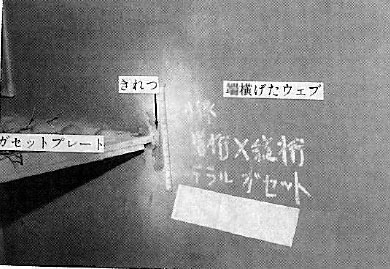 きれつ
端横げたウェブ
ガセットプレート
横桁×縦桁
ラテラルガセット